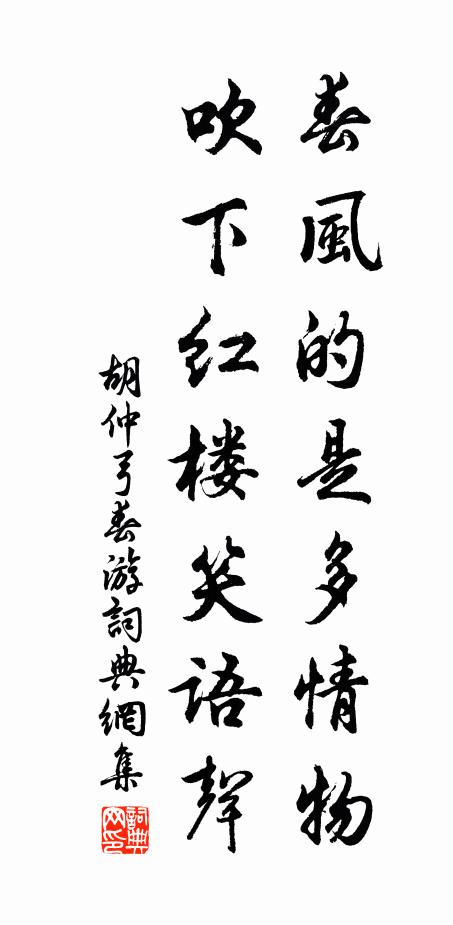 春風的是多情物
吹下红楼笑语聲
胡仲弓春游詞典網集
詞典网印